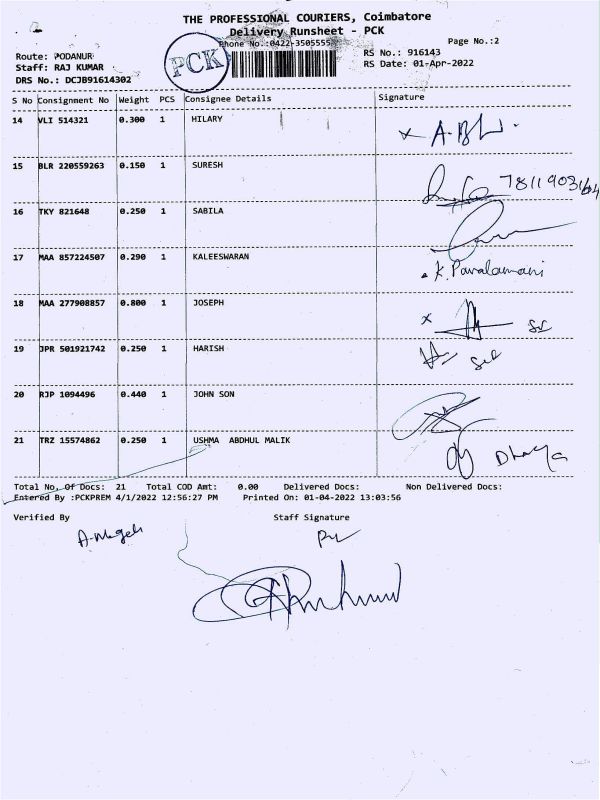 THE PROFESSIONAL COURIERS, Coimbatore
Delivery Runsheet - PCK
Phone No.:0422-3505555
Page No.:2
PCK
Route: PODANUR
RS No.: 916143
Staff: RAJ KUMAR
RS Date: 01-Apr-2022
DRS No.: DCJB91614302
S No Consignment No Weight PCS Consignee Details Signature
14 VLI 514321 0.300 1 HILARY
15 BLR 220559263 0.150 1 SURESH
16 TKY 821648 0.250 1 SABILA
17 MAA 857224507 0.290 1 KALEESWARAN K. Pavalamani
18 MAA 277908857 0.800 1 JOSEPH
19 JPR 501921742 0.250 1 HARISH
20 RJP 1094496 0.440 1 JOHN SON
21 TRZ 15574862 0.250 1 USHMA ABDHUL MALIK
Total No. Of Docs: 21 Total COD Amt: 0.00 Delivered Docs: Non Delivered Docs:
Entered By :PCKPREM 4/1/2022 12:56:27 PM Printed On: 01-04-2022 13:03:56
Verified By Staff Signature